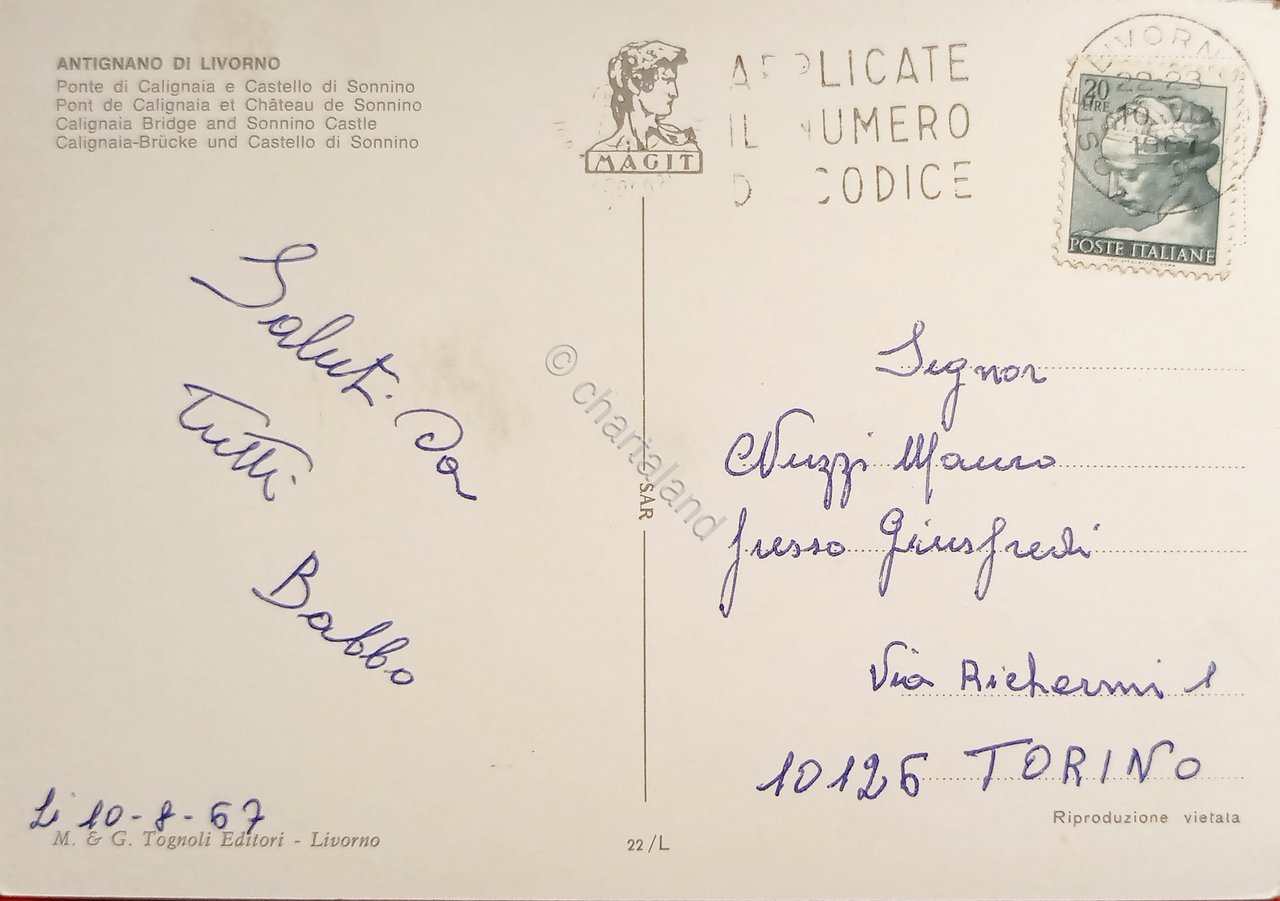 ANTIGNANO DI LIVORNO
Ponte di Calignaia e Castello di Sonnino
Pont de Calignaia et Château de Sonnino
Calignaia Bridge and Sonnino Castle
Calignaia-Brücke und Castello di Sonnino
MAGIT
APPLICATE
IL NUMERO
D CODICE
LIVORNO
22-23
10
1967
20
LIRE
POSTE ITALIANE
Saluti Da
Tutti
Babbo
Li 10-8-67
M. & G. Tognoli Editori - Livorno
SAR
22/L
© chartaland
Signor
Nuzzi Mauro
presso Giusfredi
Via Richermi 1
10126 TORINO
Riproduzione vietata